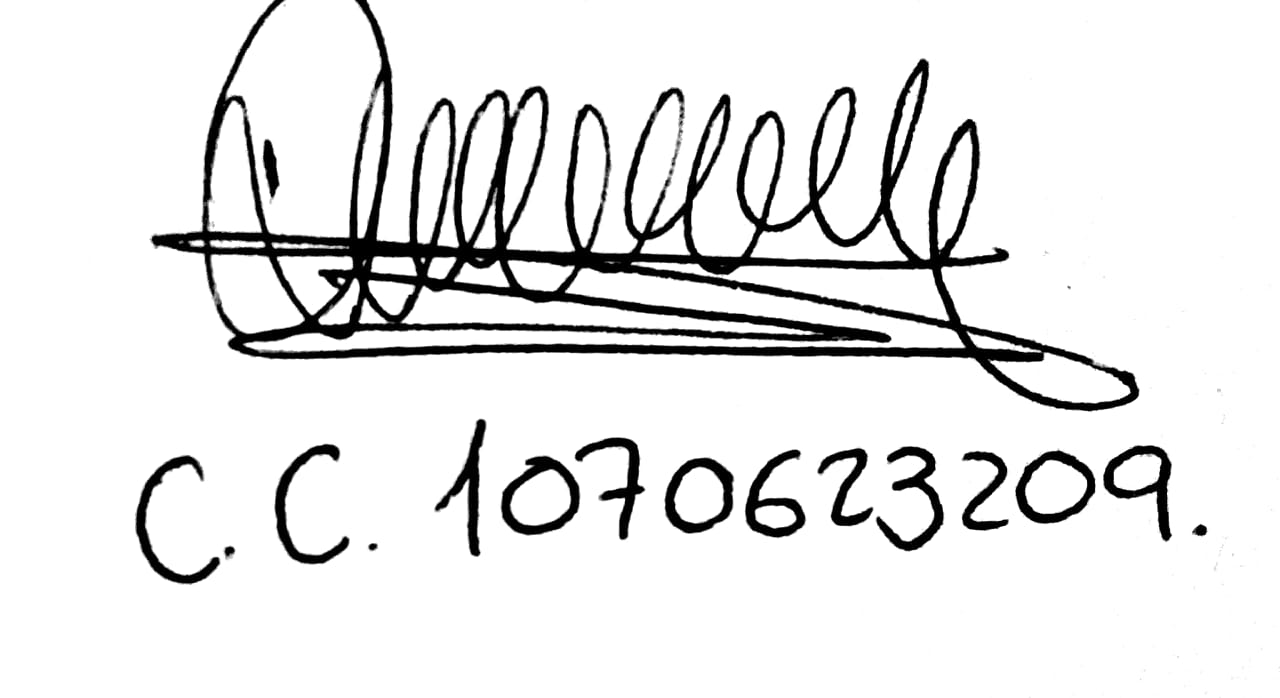 C.C. 1070623209.